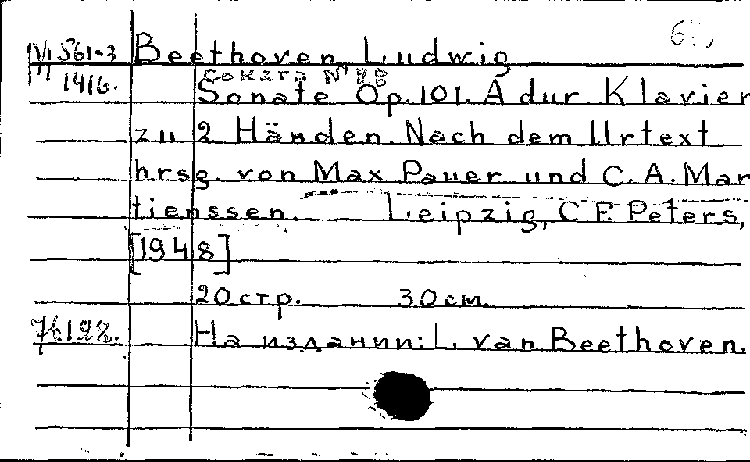 Beethoven, Ludwig
Соната N°28
1416.
Sonate Op. 101. A dur Klavier
zu 2 Händen. Nach dem Urtext
hrsg. von Max Pauer und C. A. Mar
tienssen. Leipzig, C F. Peters,
[1948]
20 стр. 30 см.
На издании: L. van Beethoven.